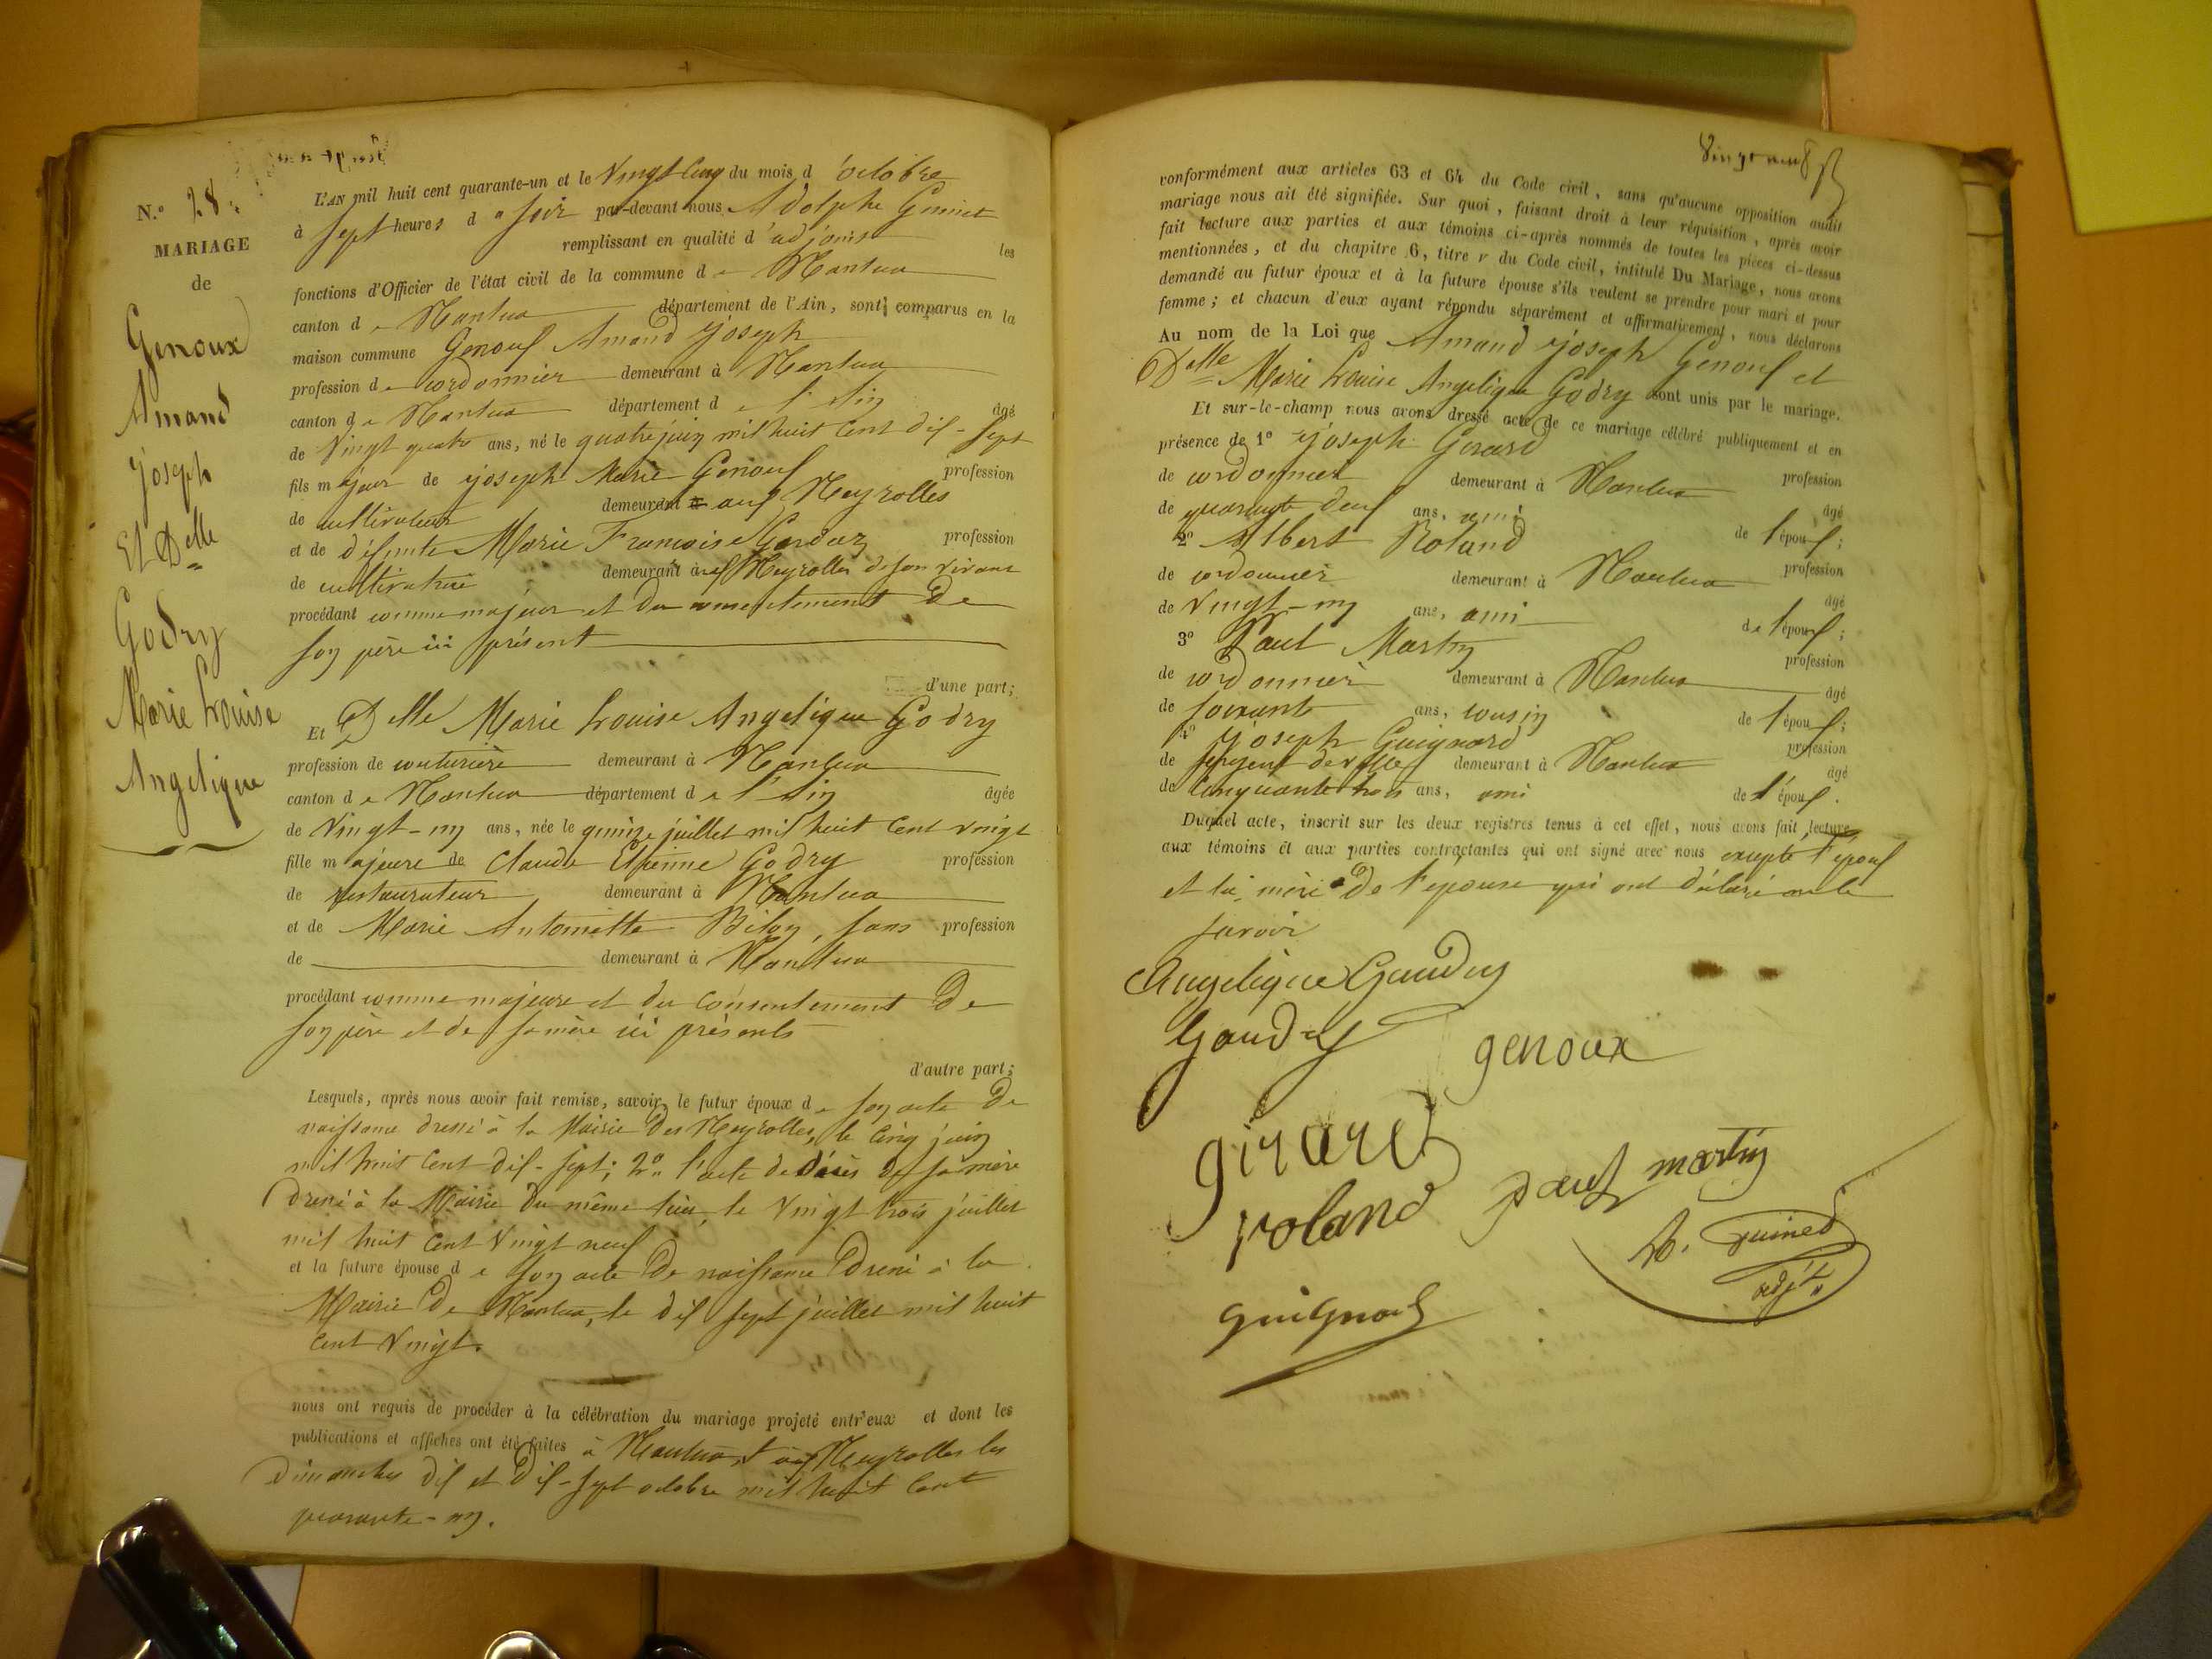 N.° 28.
MARIAGE
de
Genoux
Amand
joseph
Et Delle
Godry
Marie Louise
Angelique
L'AN mil huit cent quarante-un et le Vingt Cinq du mois d'octobre
à sept heures du soir par-devant nous Adolphe Guinet
remplissant en qualité d'adjoint les
fonctions d'Officier de l'état civil de la commune de Nantua
canton de Nantua département de l'Ain, sont comparus en la
maison commune Genoux Amand joseph
profession de cordonnier demeurant à Nantua
canton de Nantua département de l'Ain âgé
de Vingt quatre ans, né le quatre juin mil huit Cent dix-sept
fils majeur de joseph Marie Genoux profession
de cultivateur demeurant aux Neyrolles
et de défunte Marie Francoise profession
de cultivatrice demeurant aux Neyrolles de son vivant
procédant comme majeur et du consentement de
son père ici présent
d'une part;
Et Delle Marie Louise Angelique Godry
profession de couturière demeurant à Nantua
canton de Nantua département de l'Ain âgée
de Vingt-un ans, née le quinze juillet mil huit Cent vingt
fille majeure de Claude Etienne Godry profession
de restaurateur demeurant à Nantua
et de Marie Antoinette sans profession
de demeurant à Nantua
procédant comme majeure et du Consentement de
son père et de sa mère ici présents
d'autre part;
Lesquels, après nous avoir fait remise, savoir, le futur époux de son acte de
naissance dressé à la Mairie des Neyrolles, le Cinq juin
mil huit Cent dix-sept; 2° l'acte de décès de sa mère
dressé à la Mairie du même lieu, le Vingt trois juillet
mil huit Cent Vingt neuf
et la future épouse de son acte de naissance dressé à la
Mairie de Nantua, le dix sept juillet mil huit
Cent Vingt.
nous ont requis de procéder à la célébration du mariage projeté entr'eux et dont les
publications et affiches ont été faites à Nantua et aux Neyrolles les
dimanches dix et dix-sept octobre mil huit Cent
quarante-un.
Vingt neuf
conformément aux articles 63 et 64 du Code civil, sans qu'aucune opposition audit
mariage nous ait été signifiée. Sur quoi, faisant droit à leur réquisition, après avoir
fait lecture aux parties et aux témoins ci-après nommés de toutes les pièces ci-dessus
mentionnées, et du chapitre 6, titre v du Code civil, intitulé Du Mariage, nous avons
demandé au futur époux et à la future épouse s'ils veulent se prendre pour mari et pour
femme; et chacun d'eux ayant répondu séparément et affirmativement, nous déclarons
Au nom de la Loi que Amand joseph Genoux et
Delle Marie Louise Angelique Godry sont unis par le mariage.
Et sur-le-champ nous avons dressé acte de ce mariage célébré publiquement et en
présence de 1° joseph Girard profession
de cordonnier demeurant à Nantua âgé
de quarante deux ans, ami de l'époux;
2° Albert Roland profession
de cordonnier demeurant à Nantua âgé
de Vingt-un ans, ami de l'époux;
3° Paul Martin profession
de cordonnier demeurant à Nantua âgé
de soixante ans, cousin de l'époux;
4° joseph Guignard profession
de sergent de ville demeurant à Nantua âgé
de Cinquante trois ans, ami de l'époux.
Duquel acte, inscrit sur les deux registres tenus à cet effet, nous avons fait lecture
aux témoins et aux parties contractantes qui ont signé avec nous excepté l'époux
et la mère de l'épouse qui ont déclaré ne le
savoir
Angelique Gaudry
Gaudry
genoux
girard
paul martin
roland
guinet
adj't
guignard